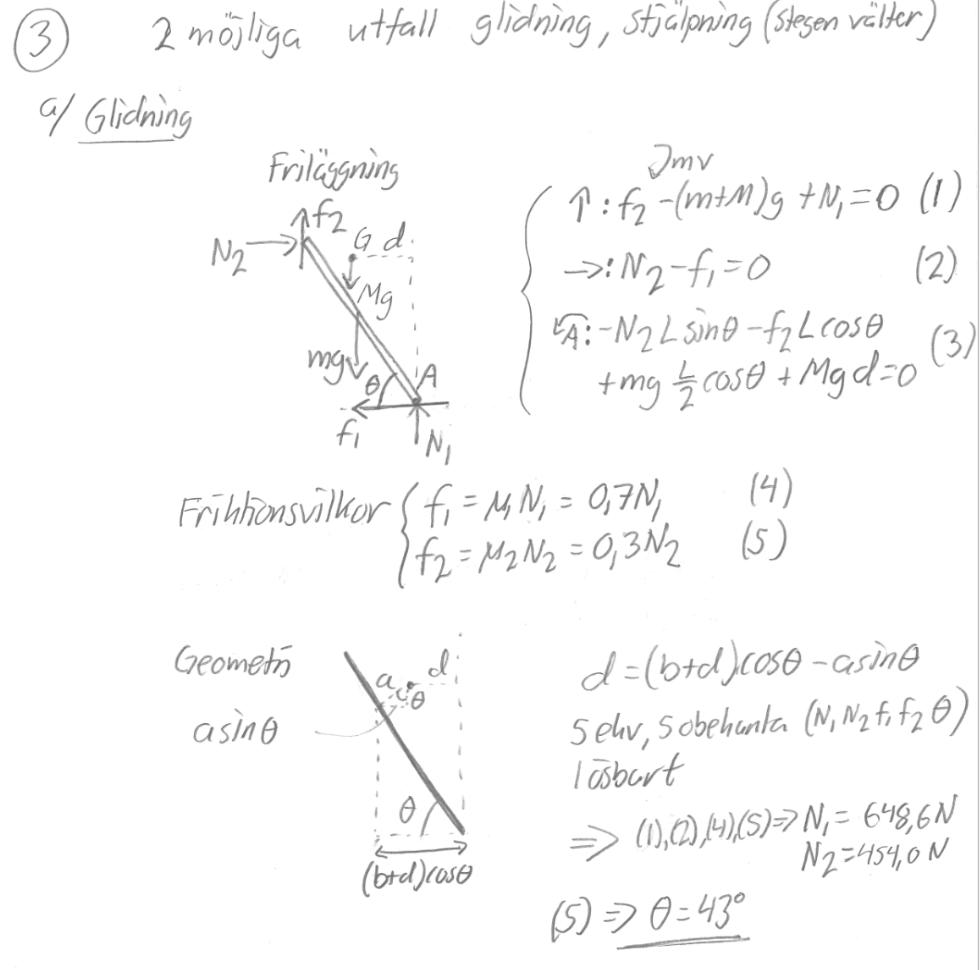 ③ 2 möjliga utfall glidning, stjälpning (stegen välter)
a/ Glidning
Friläggning
f2
N2
G d
Mg
mg
θ
A
f1
N1
Jmv
↑: f2 -(m+M)g + N1 = 0 (1)
→: N2 - f1 = 0 (2)
A: -N2 L sinθ - f2 L cosθ
+mg L/2 cosθ + Mg d = 0 (3)
Friktionsvilkor { f1 = μ1 N1 = 0,7N1 (4)
f2 = μ2 N2 = 0,3N2 (5)
Geometri
a sinθ
a
θ
d
θ
(b+d)cosθ
d = (b+d)cosθ - a sinθ
5 ekv, 5 obekanta (N1 N2 f1 f2 θ)
lösbart
⇒ (1),(2),(4),(5) ⇒ N1 = 648,6 N
N2 = 454,0 N
(5) ⇒ θ = 43°